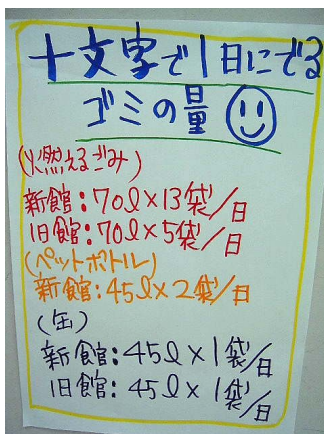 十文字で1日にでる
ゴミの量
(燃えるごみ)
新館:70ℓ×13袋/日
旧館:70ℓ×5袋/日
(ペットボトル)
新館:45ℓ×2袋/日
(缶)
新館:45ℓ×1袋/日
旧館:45ℓ×1袋/日